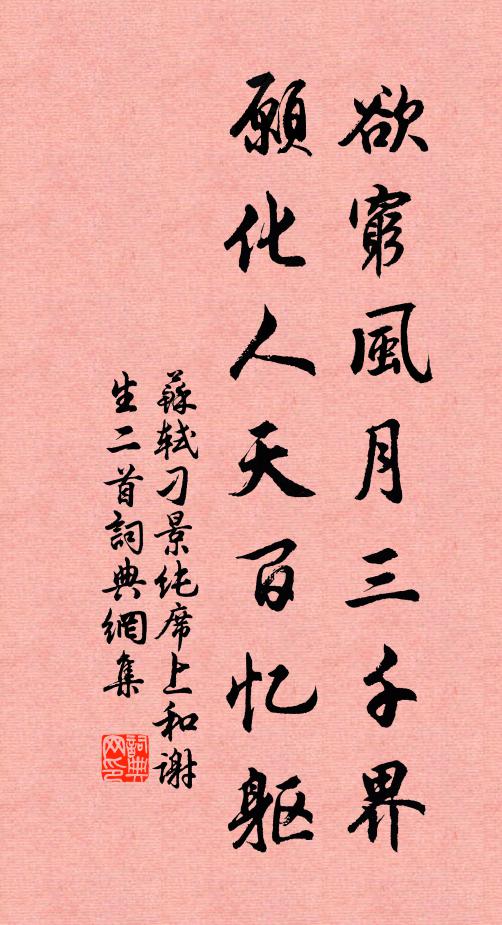 欲窮風月三千界
願化人天百忆躯
蘇轼刁景纯席上和谢
生二首詞典網集
詞典
网印